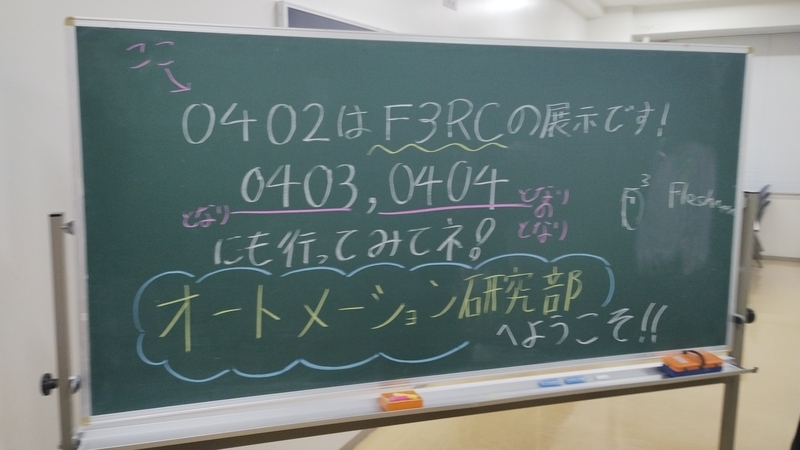 ここ
0402はF3RCの展示です!
0403,0404
となり
となりのとなり
にも行ってみてネ!
オートメーション研究部
へようこそ!!